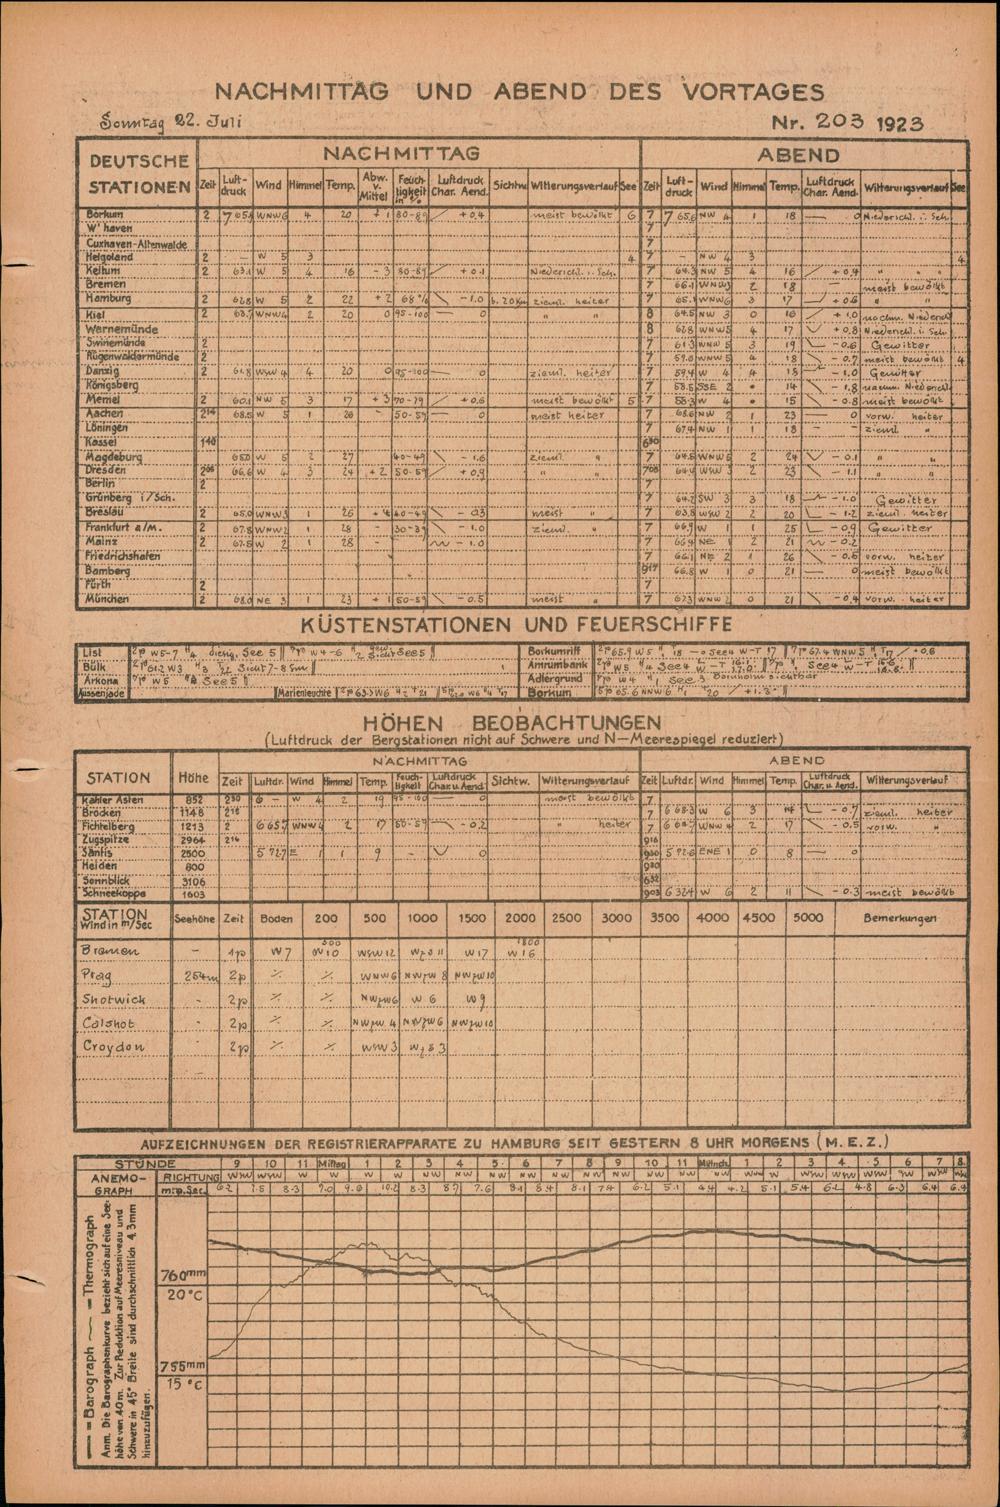 NACHMITTAG UND ABEND DES VORTAGES
Sonntag 22. Juli Nr. 203 1923
DEUTSCHE STATIONEN NACHMITTAG ABEND
Zeit Luftdruck Wind Himmel Temp. Abw. v. Mittel Feuchtigkeit in % Luftdruck Char. Aend. Sichtw. Witterungsverlauf See Zeit Luftdruck Wind Himmel Temp. Luftdruck Char. Aend. Witterungsverlauf See
Borkum 2 WNW6 4 20 +1 80-89 +0,4 meist bewölkt 6 7 765,6 NW 4 1 18 0 Niederschl. i. Sch.
W'haven 7
Cuxhaven-Altenwalde 7
Helgoland 2 – W 5 3 4 7 – NW 4 3 4
Keitum 2 63,1 W 5 4 16 -3 80-89 +0,1 Niederschl. i. Sch. 7 64,3 NW 5 4 16 +0,4 " "
Bremen 7 66,1 WNW3 2 18 meist bewölkt
Hamburg 2 62,8 W 5 2 22 +2 68% -1.0 b. 20 Km zieml. heiter 7 65,1 WNW6 3 17 +0,6 " "
Kiel 2 63,7 WNW4 2 20 0 95-100 0 " " 8 64,5 NW 3 0 16 +1,0 nachm. Niedersch
Warnemünde 8 62,8 WNW5 4 17 +0,8 Niederschl. i. Sch.
Swinemünde 2 7 61,3 NW 5 3 19 -0,6 Gewitter
Rügenwaldermünde 2 7 59,0 WNW 5 4 18 -0,7 meist bewölkt 4
Danzig 2 61,8 WSW 4 4 20 0 95-100 0 zieml. heiter 7 59,4 W 4 4 18 -1.0 Gewitter
Königsberg 7 58,5 SSE 2 14 -1,8 nachm. Niederschl
Memel 2 60,1 NW 5 3 17 +3 70-79 +0,6 meist bewölkt 5 7 58,3 W 4 15 -0,8 meist bewölkt
Aachen 2 68,5 W 5 1 26 – 50-59 0 meist heiter 7 68,6 NW 2 1 23 0 vorw. heiter
Löningen 7 67,4 NW 1 1 18 – – zieml. "
Kassel 1 40 6 30
Magdeburg 65,0 W 5 2 27 40-49 -1,6 zieml. " 7 64,5 WNW6 2 24 -0,1 " "
Dresden 66,6 W 4 3 24 +2 50-59 +0,9 " " 64,4 WSW 3 2 23 -1.1 " "
Berlin 2 7
Grünberg i/Sch. 7 64,2 SW 3 3 18 -1.0 Gewitter
Breslau 2 65,0 WNW3 1 26 +4 40-49 -0,3 meist " 7 63,8 WSW 2 2 20 -1.2 zieml. heiter
Frankfurt a/M. 2 67,8 WNW2 1 28 – 30-39 -1.0 zieml. " 7 66,9 W 1 1 25 -0,9 Gewitter
Mainz 2 67,5 W 2 1 28 – -1.0 7 66,9 NE 1 2 21 -0,2
Friedrichshafen 7 66,1 NE 2 1 26 -0,6 vorw. heiter
Bamberg 66,8 W 1 0 21 0 meist bewölkt
Fürth 2 7
München 2 68,0 NE 3 1 23 +1 50-59 -0,5 meist " 7 67,3 WNW 2 0 21 -0,4 vorw. heiter
KÜSTENSTATIONEN UND FEUERSCHIFFE
List 2p W5-7 diesig, See 5 W4-6 See5 Borkumriff 2p 65,9 W5 See4 W-T 17 7p 67,4 WNW5 +0,6
Bülk 2p 61,2 W3 Sicht 7-8 Sm Amrumbank W5 See4 W-T See4 W-T
Arkona 7p W5 See5 Adlergrund 7p W4 See 3 Bornholm sichtbar
Aussenjade Marienleuchte 2p 63,3 W6 21 W6 Borkum 5p 65,6 NNW6 20 +1.3
HÖHEN BEOBACHTUNGEN
(Luftdruck der Bergstationen nicht auf Schwere und N–Meerespiegel reduziert)
STATION Höhe NACHMITTAG ABEND
Zeit Luftdr. Wind Himmel Temp. Feuchtigkeit Luftdruck Char. u. Aend. Sichtw. Witterungsverlauf Zeit Luftdr. Wind Himmel Temp. Luftdruck Char. u. Aend. Witterungsverlauf
Kahler Asten 852 2 30 6 – W 4 2 19 95-100 0 meist bewölkt 7
Brocken 1148 2 7 W 6 3 14 -0,7 zieml. heiter
Fichtelberg 1213 2 6 65,7 WNW4 2 17 50-59 -0,2 " heiter 7 WNW 4 2 17 -0,5 vorw. "
Zugspitze 2964
Säntis 2500 5 72,7 E 1 1 9 – 0 9 30 5 72,6 ENE 1 0 8 0
Heiden 800
Sonnblick 3106
Schneekoppe 1603 9 6 32,4 W 6 2 11 -0,3 meist bewölkt
STATION Wind in m/Sec Seehöhe Zeit Boden 200 500 1000 1500 2000 2500 3000 3500 4000 4500 5000 Bemerkungen
Bremen – 4p W7 300 W10 WSW12 WzS11 W17 1800 W16
Prag 254m 2p ٪ ٪ WNW6 NWzW 8 NWzW10
Shotwick - 2p ٪ ٪ NWzW6 W 6 W9
Calshot - 2p ٪ ٪ NWzW 4 NWzW6 NWzW10
Croydon 2p ٪ ٪ WSW3 WzS3
AUFZEICHNUNGEN DER REGISTRIERAPPARATE ZU HAMBURG SEIT GESTERN 8 UHR MORGENS (M.E.Z.)
STUNDE 9 10 11 Mittag 1 2 3 4 5 6 7 8 9 10 11 Mittnch. 1 2 3 4 5 6 7 8
ANEMOGRAPH
RICHTUNG WNW WNW WNW W W W W W NW NW NW NW NW NW NW W WNW W NW W W W WNW
m.p.Sec. 6.2 7.5 8.3 9.0 9.0 10.2 8.3 8.7 7.6 8.1 8.4 8.1 7.4 6.2 5.1 4.4 4.2 5.1 5.4 6.2 4.8 6.3 6.4 6.4
760mm
20°C
755mm
15°C
— = Barograph — = Thermograph
Anm. Die Barographenkurve bezieht sich auf eine Seehöhe von 40 m. Zur Reduktion auf Meeresniveau und Schwere in 45° Breite sind durchschnittlich 4,3mm hinzuzufügen.